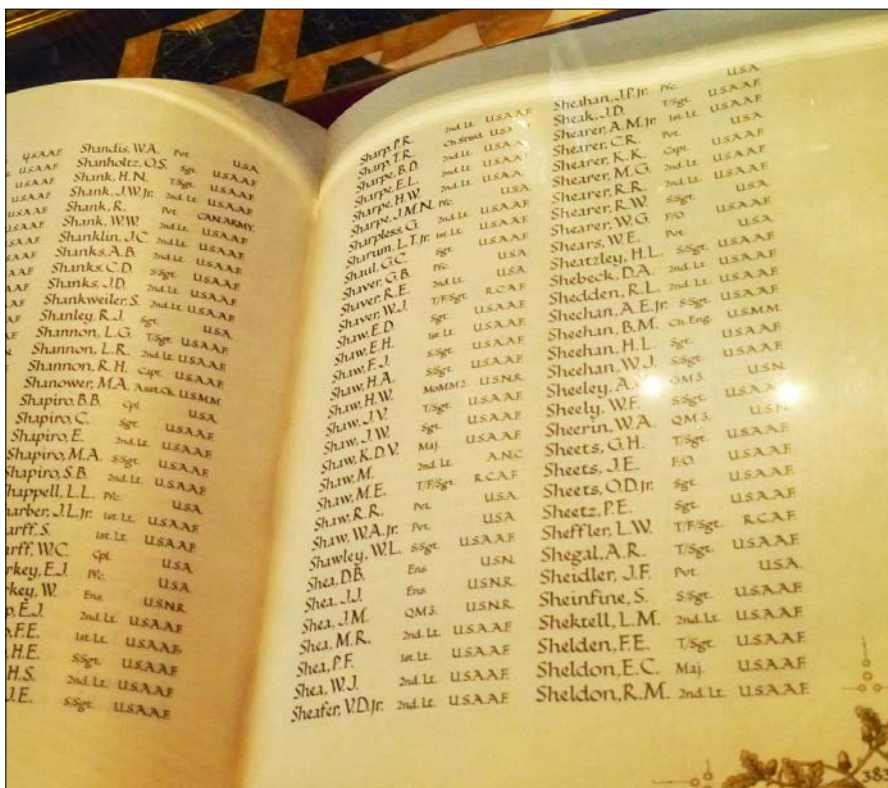 Shandis, W.A. Pvt. U.S.A.
Shanholtz, O.S. Sgt. U.S.A.A.F.
Shank, H.N. T/Sgt. U.S.A.A.F.
Shank, J.W.Jr. 2nd. Lt. U.S.A.A.F.
Shank, R. Pvt. CAN.ARMY.
Shank, W.W. 2nd. Lt. U.S.A.A.F.
Shanklin, J.C. 2nd. Lt. U.S.A.A.F.
Shanks, A.B. 2nd. Lt. U.S.A.A.F.
Shanks, C.D. S/Sgt. U.S.A.A.F.
Shanks, J.D. 2nd. Lt. U.S.A.A.F.
Shankweiler, S. 2nd. Lt. U.S.A.A.F.
Shanley, R.J. Sgt. U.S.A.
Shannon, L.G. T/Sgt. U.S.A.A.F.
Shannon, L.R. 2nd. Lt. U.S.A.A.F.
Shannon, R.H. Capt. U.S.A.A.F.
Shanower, M.A. Asst.Ch. U.S.M.M.
Shapiro, B.B. Cpl. U.S.A.
Shapiro, C. Sgt. U.S.A.A.F.
Shapiro, E. 2nd. Lt. U.S.A.A.F.
Shapiro, M.A. S/Sgt. U.S.A.A.F.
Shapiro, S.B. 2nd. Lt. U.S.A.A.F.
happell, L.L. Pfc. U.S.A.
harber, J.L.Jr. 1st. Lt. U.S.A.A.F.
arff, S. 1st. Lt. U.S.A.A.F.
arff, W.C. Cpl. U.S.A.
rkey, E.J. Pfc. U.S.A.
rkey, W. Ens. U.S.N.R.
E.J. 2nd. Lt. U.S.A.A.F.
F.E. 1st. Lt. U.S.A.A.F.
H.E. S/Sgt. U.S.A.A.F.
H.S. 2nd. Lt. U.S.A.A.F.
J.E. S/Sgt. U.S.A.A.F.
Sharp, P.R. 2nd. Lt. U.S.A.A.F.
Sharp, T.R. Ch.Stwd.
Sharpe, B.D. 2nd. Lt. U.S.A.A.F.
Sharpe, E.L. 2nd. Lt. U.S.A.A.F.
Sharpe, H.W. 2nd. Lt. U.S.A.A.F.
Sharpe, J.M.N. Pfc. U.S.A.
Sharpless, G. 2nd. Lt. U.S.A.A.F.
Sharum, L.T.Jr. 1st. Lt. U.S.A.A.F.
Shaul, G.C. Sgt. U.S.A.A.F.
Shaver, G.B. Pfc. U.S.A.
Shaver, R.E. 2nd. Lt. U.S.A.
Shaver, W.J. T/F/Sgt. R.C.A.F.
Shaw, E.D. Sgt. U.S.A.A.F.
Shaw, E.H. 1st. Lt. U.S.A.A.F.
Shaw, F.J. S/Sgt. U.S.A.A.F.
Shaw, H.A. S/Sgt. U.S.A.A.F.
Shaw, H.W. MoMM2. U.S.N.R.
Shaw, J.V. T/Sgt. U.S.A.A.F.
Shaw, J.W. Sgt. U.S.A.A.F.
Shaw, K.D.V. Maj. U.S.A.A.F.
Shaw, M. 2nd. Lt. A.N.C.
Shaw, M.E. T/F/Sgt. R.C.A.F.
Shaw, R.R. Pvt. U.S.A.
Shaw, W.A.Jr. Pvt. U.S.A.
Shawley, W.L. S/Sgt. U.S.A.A.F.
Shea, D.B. Ens. U.S.N.
Shea, J.J. Ens. U.S.N.R.
Shea, J.M. QM3. U.S.N.R.
Shea, M.R. 2nd. Lt. U.S.A.A.F.
Shea, P.F. 1st. Lt. U.S.A.A.F.
Shea, W.J. 2nd. Lt. U.S.A.A.F.
Sheafer, V.D.Jr. 2nd. Lt. U.S.A.A.F.
Sheahan, J.P.Jr. Pfc. U.S.A.
Sheak, J.D. T/Sgt. U.S.A.A.F.
Shearer, A.M.Jr. 1st. Lt. U.S.A.A.F.
Shearer, C.R. Pvt. U.S.A.
Shearer, K.K. Capt. U.S.A.A.F.
Shearer, M.G. 2nd. Lt. U.S.A.A.F.
Shearer, R.R. 2nd. Lt. U.S.A.A.F.
Shearer, R.W. S/Sgt. U.S.A.
Shearer, W.G. F/O. U.S.A.A.F.
Shears, W.E. Pvt. U.S.A.
Sheatzley, H.L. S/Sgt. U.S.A.A.F.
Shebeck, D.A. 2nd. Lt. U.S.A.A.F.
Shedden, R.L. 2nd. Lt. U.S.A.A.F.
Sheehan, A.E.Jr. S/Sgt. U.S.A.A.F.
Sheehan, B.M. Ch. Eng. U.S.M.M.
Sheehan, H.L. Sgt. U.S.A.A.F.
Sheehan, W.J. S/Sgt. U.S.A.A.F.
Sheeley, QM3. U.S.N.
Sheely, W.F. S/Sgt. U.S.A.A.F.
Sheerin, W.A. QM3. U.S.N.
Sheets, G.H. T/Sgt. U.S.A.A.F.
Sheets, J.E. F.O. U.S.A.A.F.
Sheets, O.D.Jr. Sgt. U.S.A.A.F.
Sheetz, P.E. Sgt. U.S.A.A.F.
Sheffler, L.W. T/F/Sgt. R.C.A.F.
Shegal, A.R. T/Sgt. U.S.A.A.F.
Sheidler, J.F. Pvt. U.S.A.
Sheinfine, S. S/Sgt. U.S.A.A.F.
Shektell, L.M. 2nd. Lt. U.S.A.A.F.
Shelden, F.E. T/Sgt. U.S.A.A.F.
Sheldon, E.C. Maj. U.S.A.A.F.
Sheldon, R.M. 2nd. Lt. U.S.A.A.F.
383